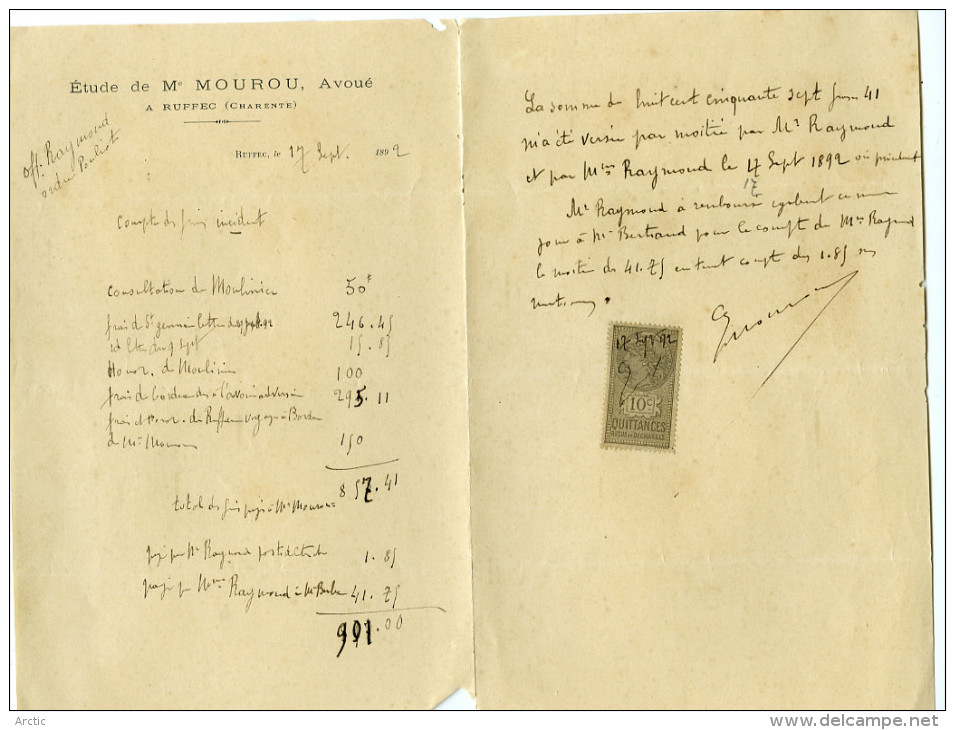 Étude de Me MOUROU, Avoué
A RUFFEC (CHARENTE)
off. Raymond
RUFFEC, le 17 Sept. 1892
Compte des frais incident
Consultation de Moulinier 50f
frais de St germain lettre du 92 246.45
id lettre du 9 Sept 15.85
Honor. de Moulinier 100
frais de Bordeaux à l'avoué adverse 295.11
frais et honor. de Ruffec voyage à Bordeaux
de Me Mourou 150
857.41
total des frais payés à Me Mourou
payé par Mr Raymond 1.85
payé par Mme Raymond à Me 41.75
901.00
La somme de huit cent cinquante sept francs 41
m'a été versée par moitié par Mr Raymond
et par Mme Raymond le 17 Sept 1892
17
Mr Raymond a remboursé également ce même
jour à Me Bertrand pour le compte de Mme Raymond
la moitié des 41.75 en tenant compte des 1.85
17 Sept 92
10c
QUITTANCES
REÇUS ET DÉCHARGES
Arctic
www.delcampe.net